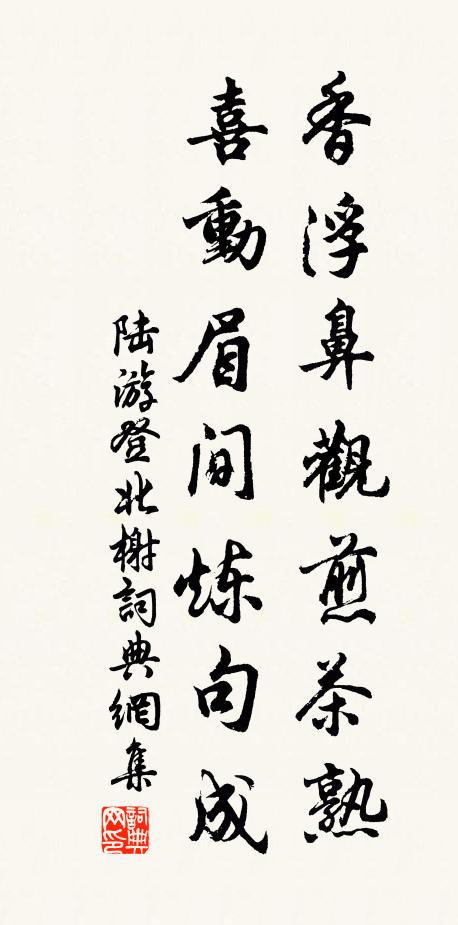 香浮鼻觀煎茶熟
喜動眉間炼句成
陆游登北榭詞典網集
詞典网印